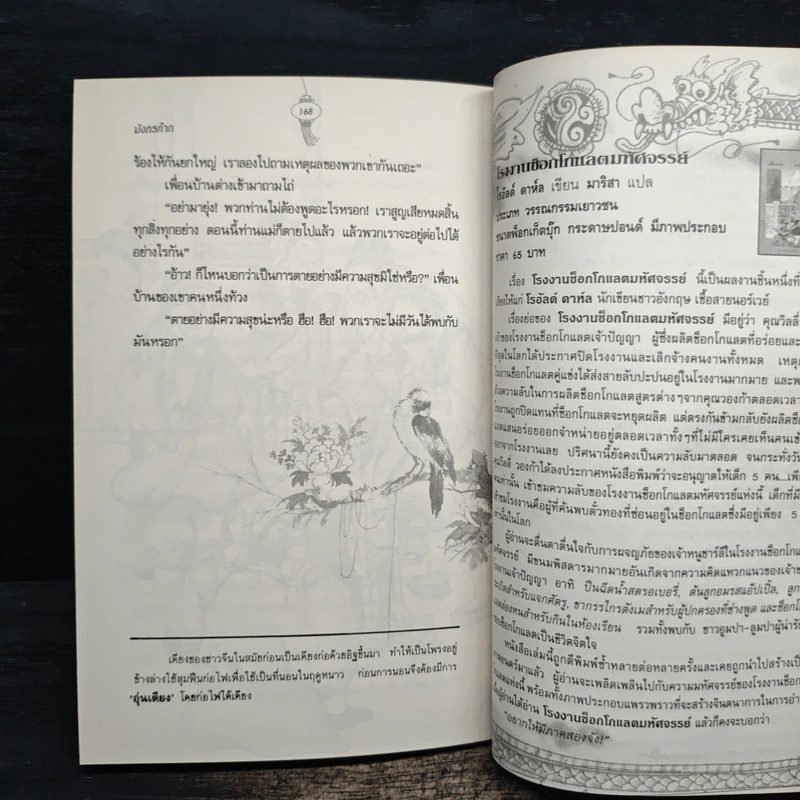 168
มังกรก๊าก
ร้องไห้กันยกใหญ่ เราลองไปถามเหตุผลของพวกเขากันเถอะ”
เพื่อนบ้านต่างเข้ามาถามไถ่
“อย่ามายุ่ง! พวกท่านไม่ต้องพูดอะไรหรอก! เราสูญเสียหมดสิ้น
ทุกสิ่งทุกอย่าง ตอนนี้ท่านแม่ก็ตายไปแล้ว แล้วพวกเราจะอยู่ต่อไปได้
อย่างไรกัน”
“อ้าว! ก็ไหนบอกว่าเป็นการตายอย่างมีความสุขมิใช่หรือ?” เพื่อน
บ้านของเขาคนหนึ่งท้วง
“ตายอย่างมีความสุขน่ะหรือ ฮือ! ฮือ! พวกเราจะไม่มีวันได้พบกับ
มันหรอก”
เตียงของชาวจีนในสมัยก่อนเป็นเตียงก่อด้วยอิฐขึ้นมา ทำให้เป็นโพรงอยู่
ข้างล่างใช้สุมฟืนก่อไฟเพื่อใช้เป็นที่นอนในฤดูหนาว ก่อนการนอนจึงต้องมีการ
‘อุ่นเตียง’ โดยก่อไฟใต้เตียง
โรงงานช็อกโกแลตมหัศจรรย์
โรอัลด์ ดาห์ล เขียน มาริสา แปล
ประเภท วรรณกรรมเยาวชน
ขนาดพ็อกเก็ตบุ๊ก กระดาษปอนด์ มีภาพประกอบ
ราคา 65 บาท
เรื่อง โรงงานช็อกโกแลตมหัศจรรย์ นี้เป็นผลงานชิ้นหนึ่งที่
เสียงให้แก่ โรอัลด์ ดาห์ล นักเขียนชาวอังกฤษ เชื้อสายนอร์เวย์
เรื่องย่อของ โรงงานช็อกโกแลตมหัศจรรย์ มีอยู่ว่า คุณวิลลี่
เจ้าของโรงงานช็อกโกแลตเจ้าปัญญา ผู้ซึ่งผลิตช็อกโกแลตที่อร่อยและ
ที่สุดในโลกได้ประกาศปิดโรงงานและเลิกจ้างคนงานทั้งหมด
โรงงานช็อกโกแลตคู่แข่งได้ส่งสายลับปะปนอยู่ในโรงงานมากมาย
ล้วงความลับในการผลิตช็อกโกแลตสูตรต่างๆจากคุณวองก้าตลอดเวลา
โรงงานถูกปิดแทนที่ช็อกโกแลตจะหยุดผลิต แต่ตรงกันข้ามกลับยังผลิต
แสนอร่อยออกจำหน่ายอยู่ตลอดเวลาทั้งๆที่ไม่มีใครเคยเห็นคน
ออกจากโรงงานเลย ปริศนานี้ยังคงเป็นความลับมาตลอด จนกระทั่งวัน
คุณวิลลี่ วองก้าได้ลงประกาศหนังสือพิมพ์ว่าจะอนุญาตให้เด็ก 5 คน...
เท่านั้น เข้าชมความลับของโรงงานช็อกโกแลตมหัศจรรย์แห่งนี้ เด็กที่
เข้าชมโรงงานคือผู้ที่ค้นพบตั๋วทองที่ซ่อนอยู่ในช็อกโกแลตซึ่งมีอยู่เพียง 5
เท่านั้นในโลก
ผู้อ่านจะตื่นตาตื่นใจกับการผจญภัยของเจ้าหนูชาร์ลีในโรงงาน
มหัศจรรย์ มีขนมพิสดารมากมายอันเกิดจากความคิดแหวกแนวของ
โรงงานเจ้าปัญญา อาทิ ปืนฉีดน้ำสตรอเบอรี่, ต้นลูกอมรสแอ๊ปเปิ้ล,
ระเบิดสำหรับแจกศัตรู, ขากรรไกรตังเมสำหรับผู้ปกครองที่ช่างพูด
ล่องหนสำหรับกินในห้องเรียน รวมทั้งพบกับ ชาวอูมปา-ลูมปาผู้น่ารัก
ช็อกโกแลตเป็นชีวิตจิตใจ
หนังสือเล่มนี้ถูกตีพิมพ์ซ้ำหลายต่อหลายครั้งและเคยถูกนำไปสร้างเป็น
ภาพยนตร์มาแล้ว ผู้อ่านจะเพลิดเพลินไปกับความมหัศจรรย์ของโรงงาน
แห่งนี้ พร้อมทั้งภาพประกอบแพรวพราวที่จะสร้างจินตนาการในการอ่าน
เมื่อผู้อ่านได้อ่าน โรงงานช็อกโกแลตมหัศจรรย์ แล้วก็คงจะบอกว่า
“อยากให้มีภาคสองจัง!”